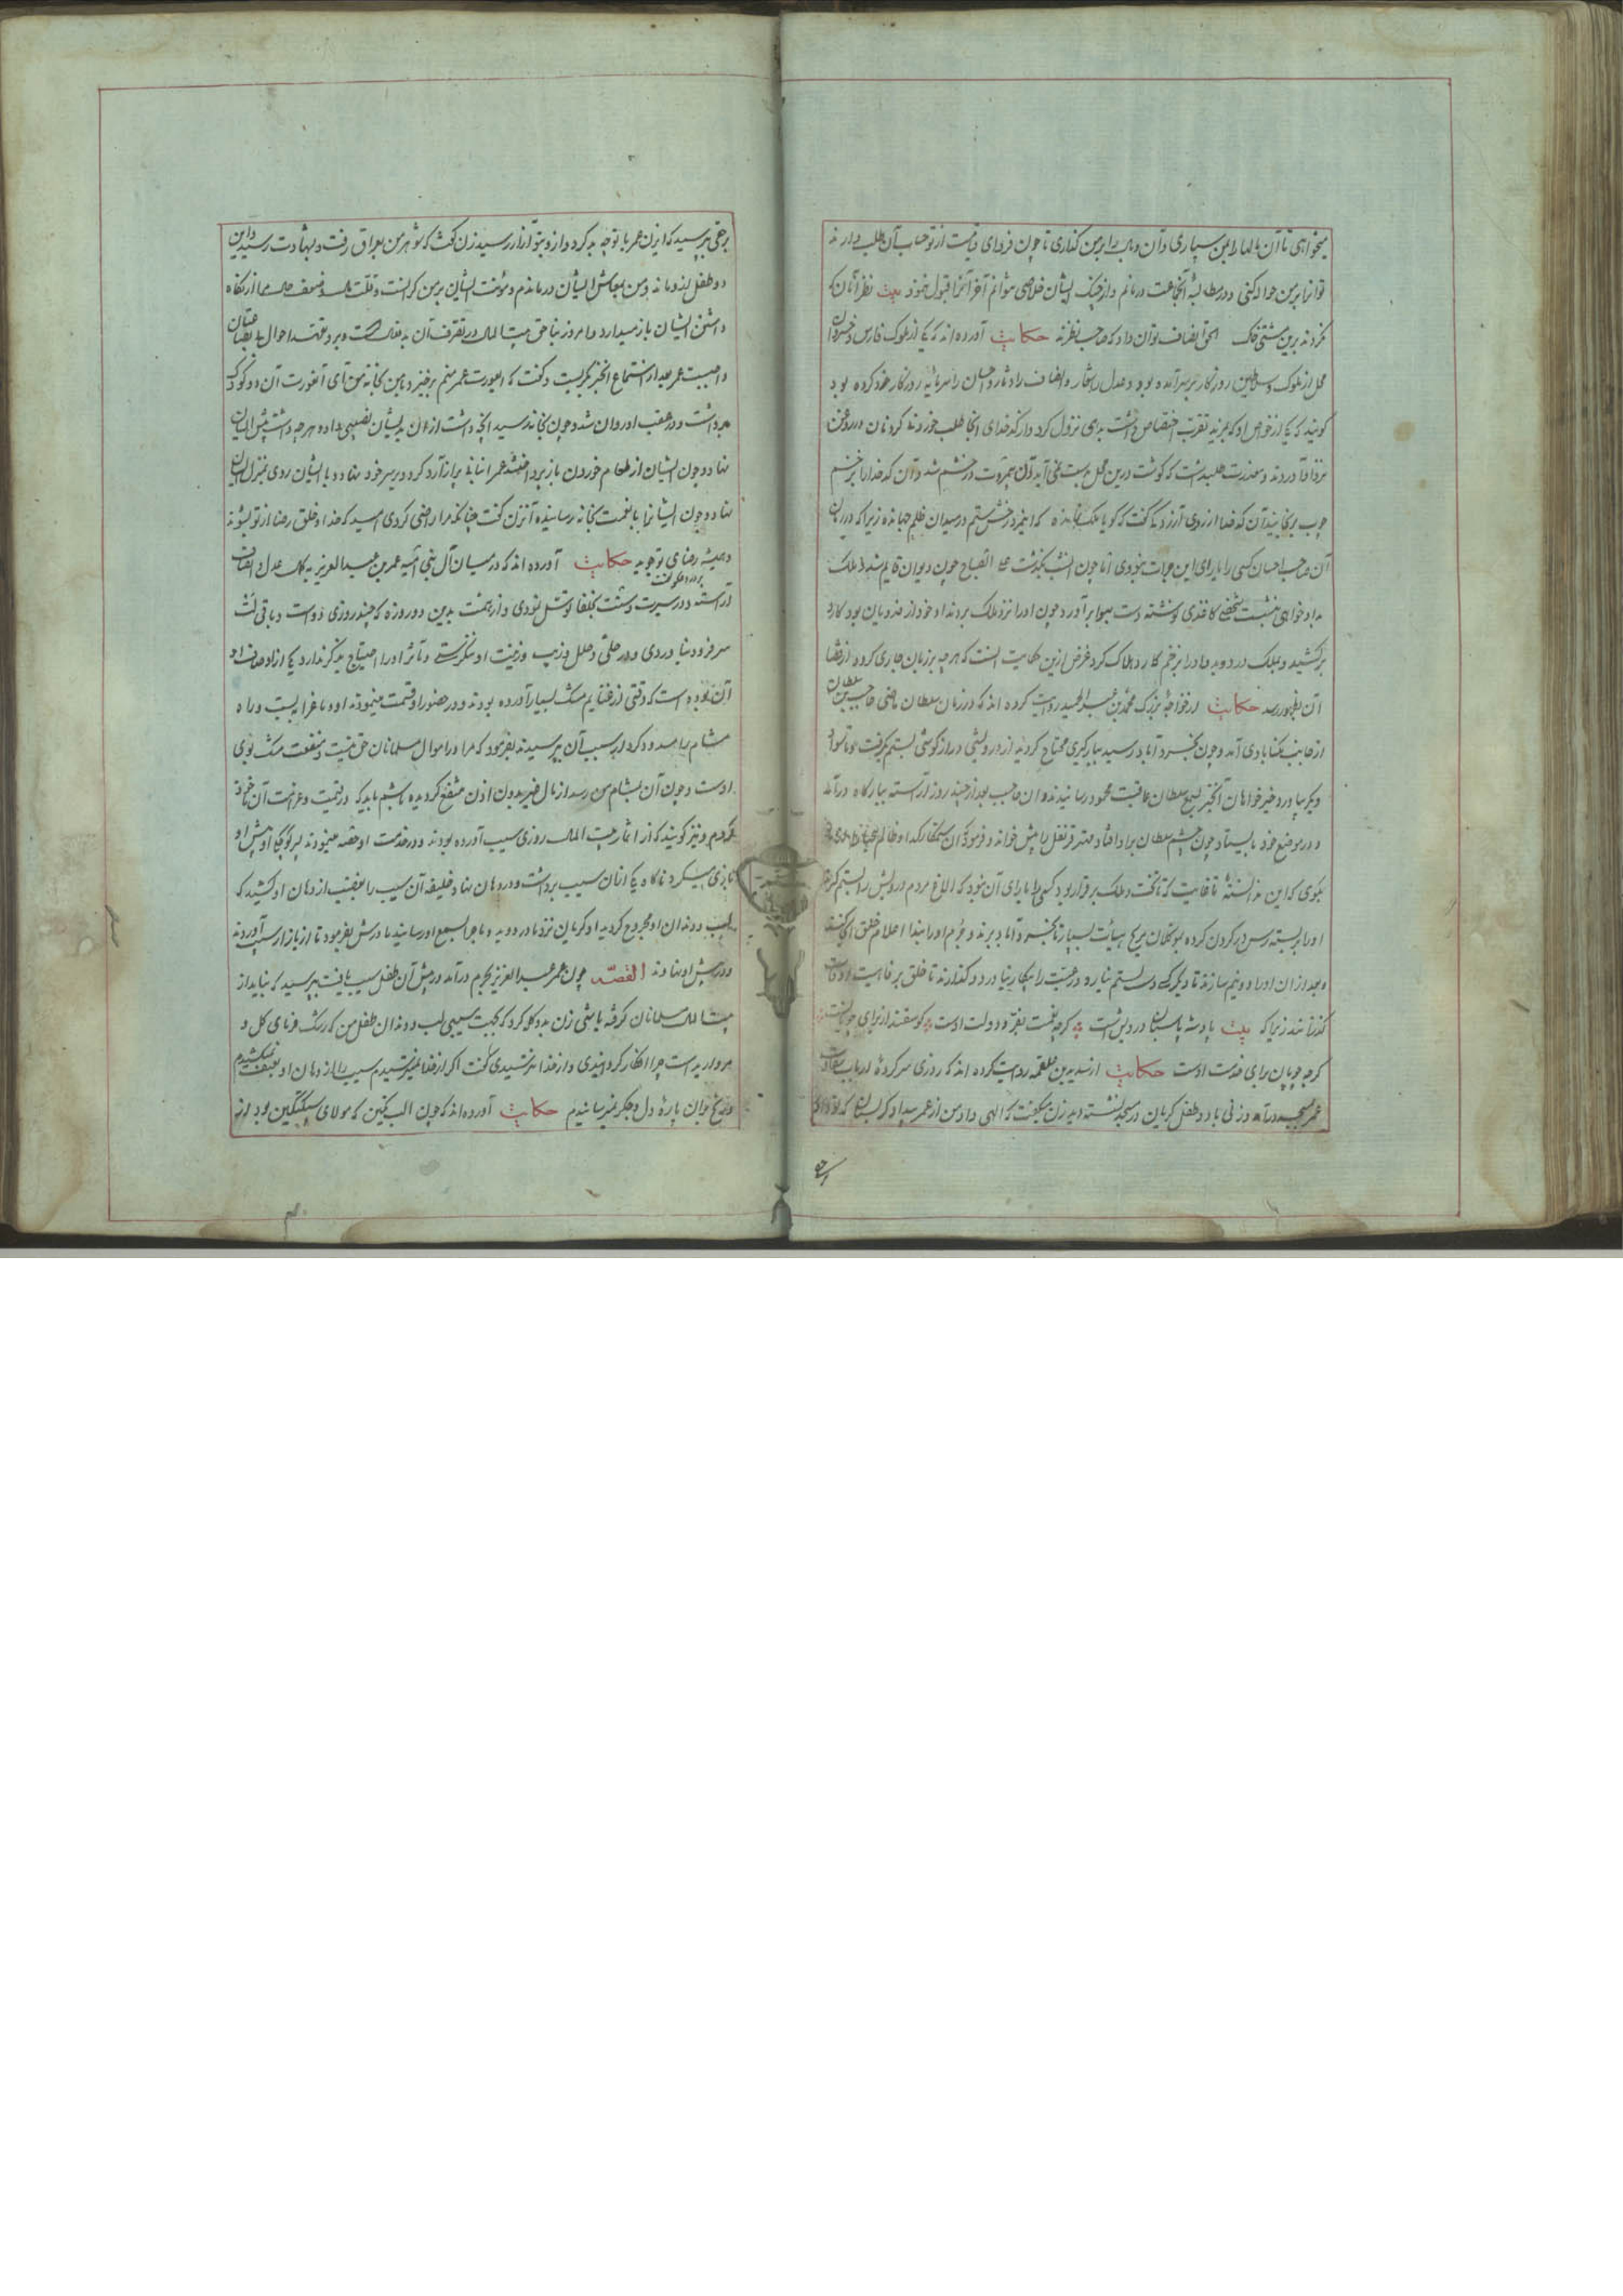 میخواهی تا آن مالها را بمن سپاری و آن وبال را بر من گذاری تا چون فردای قیامت از تو حساب آن طلب دارند
تو آنرا بر من حواله کنی و در مطالبهٔ آنجماعت درمانم و از چنگ ایشان خلاصی نتوانم آخر آنرا قبول ننمود بیت نظر آنان که
نکردند برین مشتی خاک الحق انصاف توان داد که صاحب نظرند حکایت آورده اند که یکی از ملوک فارس
محل از ملوک و سلاطین روزگار بر سر آمده بود و عدل را شعار و انصاف را دثار و احسان را سرمایهٔ روزگار خود کرده بود
گویند که یکی از خواص او که بمزید تقرب اختصاص داشت بدهی نزول کرد و از کدخدای آنجا طلب خوردنی کرد نان و روغن
نزد او آوردند و معذرت طلبید که گوشت درین محل بدست نمی آید آن بیمروت در خشم شد و آن کدخدا را بزخم
چوب برنجانید آن کدخدا از روی آزردگی گفت که گویا ملک نمانده که این مرد رخش ستم در میدان ظلم جهانده زیرا که در زمان
آن صاحب احسان کسی را یارای این جرات نبودی اما چون آنشب بگذشت علی الصباح چون دیوان قایم شد و ملک
بدادخواهی بنشست شخصی کاغذی نوشته دست بهوا برآورد چون او را نزد ملک بردند او خود از فدویان بود کارد
برکشید و بملک در دوید و او را بزخم کارد هلاک کرد غرض ازین حکایت آنست که هرچه بر زبان جاری گردد از قضا
آن بظهور رسد حکایت از خواجهٔ بزرگ محمد بن عبد الحمید روایت کرده اند که در زمان سلطان ماضی حاجب سلطان
از جانب آمد و چون بخسروآباد رسید ببارگیری محتاج گردید از درویشی دراز گوشی بستم بگرفت
دیگر بیاورد و خیرخواهان آنخبر بسمع سلطان عاقبت محمود رسانیدند و آن حاجب بعد از چند روز آراسته ببارگاه درآمد
و در موضع خود بایستاد چون چشم سلطان برو افتاد مهتر قرنفل را پیش خواند و فرمود که آن ستمکار
بگوی که این نه دانستهٔ تا غایت که تا تخت و ملک برقرار بود کسی را یارای آن نبود که الاغ مردم درویش را بستم گیرد
او را بربسته رسن در گردن کرده بموکلان بهیأت بسیار تا بخسروآباد برند و جرم او را بندا اعلام خلق آن کنند
و بعد از آن او را دو نیم سازند تا دیگر کسی دست بستم نیارد و رعیت را بیگار نیارد و گذارند تا خلق برفاهیت اوقات
گذرانند زیرا که بیت پادشه پاسبان درویش است گرچه نعمت بفر دولت اوست گوسفند از برای چوپان نیست
گرچه چوپان برای خدمت اوست حکایت از سدید بن علقمه روایت کرده اند که روزی سرکردهٔ ارباب سعادت
عمر بمسجد درآمد و زنی با دو طفل گریان در مسجد نشسته دید زن میگفت که الهی داد من از عمر بستان که تو دادی
برحق بپرسید که ای زن عمر با تو چه بد کرد و از و بتو چه آزار رسید زن گفت که شوهر من بعراق رفت و بشهادت رسید و این
دو طفل از و ماند و من بمعاش ایشان درماندم و مؤنت ایشان بر من گرانست و قلت مال و ضعف حال ما را از نگاه
داشتن ایشان باز میدارد و امروز بناحق بیت المال در تصرف آن بدفعالست و برو تعهد احوال ما
واجبست عمر بعد از استماع آنخبر بگریست و گفت که ای عورت عمر منم برخیز و با من بخانهٔ من آی آنعورت آن دو کودک
برداشت و در عقب او روان شد و چون بخانه رسید آنچه داشت از نان بدیشان نصیبی داده هرچه داشت پیش ایشان
نهاد و چون ایشان از طعام خوردن باز پرداختند عمر انبانی پر از آرد کرد و بر سر خود نهاد و با ایشان روی بمنزل ایشان
نهاد و چون ایشان را با نعمت بخانه رسانیده آن زن گفت چنانکه مرا راضی کردی امید که خدا و خلق رضا از تو بشوند
و همیشه رضای تو جویند حکایت آورده اند که در میان آل بنی امیه عمر بن عبد العزیز بکمال عدل و انصاف
آراسته و در سیرت و سنت بخلفا توسل نمودی و از همت بدین دو روزه که چند روزی
سر فرو دنیاوردی و در حلی و حلل و زیب و زینت او ننگریستی و مآثر او را احتیاج بذکر ندارد یکی از اوصاف او
آن بوده است که وقتی از غنایم مشک بسیار آورده بودند و در حضور او قسمت مینمودند او دماغ را ببست و راه
مشام را مسدود کرد از سبب آن پرسیدند بفرمود که مرا در اموال مسلمانان حق نیست و منفعت مشک بوی
اوست و چون آن بمشام من رسد از مال غیر بدون اذن منتفع گردیده باشم باید که در قیمت و غرامت آن
گردم و نیز گویند که از اثمار بیت المال روزی سیب آورده بودند و در خدمت او حصه مینمودند پسر کوچک او پیش او
بازی میکرد ناگاه یکی از آن سیب برداشت و در دهان نهاد خلیفه آن سیب را بعنف از دهان او کشید که
لب و دندان او مجروح گردید او گریان نزد مادر دوید و ماجرا بسمع او رسانید مادرش بفرمود تا از بازار سیب آوردند
و در پیش او نهادند القصه چون عمر عبد العزیز بحرم درآمد در پیش آن طفل سیب یافت بپرسید که نباید از
بیت المال مسلمانان گرفته باشی زن بدو گله کرد که بجهت سیبی لب و دندان طفل من که رشک فرمای گل و
مروارید است چرا افگار گردانیدی و از خدا نترسیدی گفت اگر از خدا نمیترسیدم سیب را از دهان او بعنف نمیکشیدم
و رنج بدان پارهٔ دل و جگر نمیرسانیدم حکایت آورده اند که چون الب تکین که مولای سبکتگین بود از